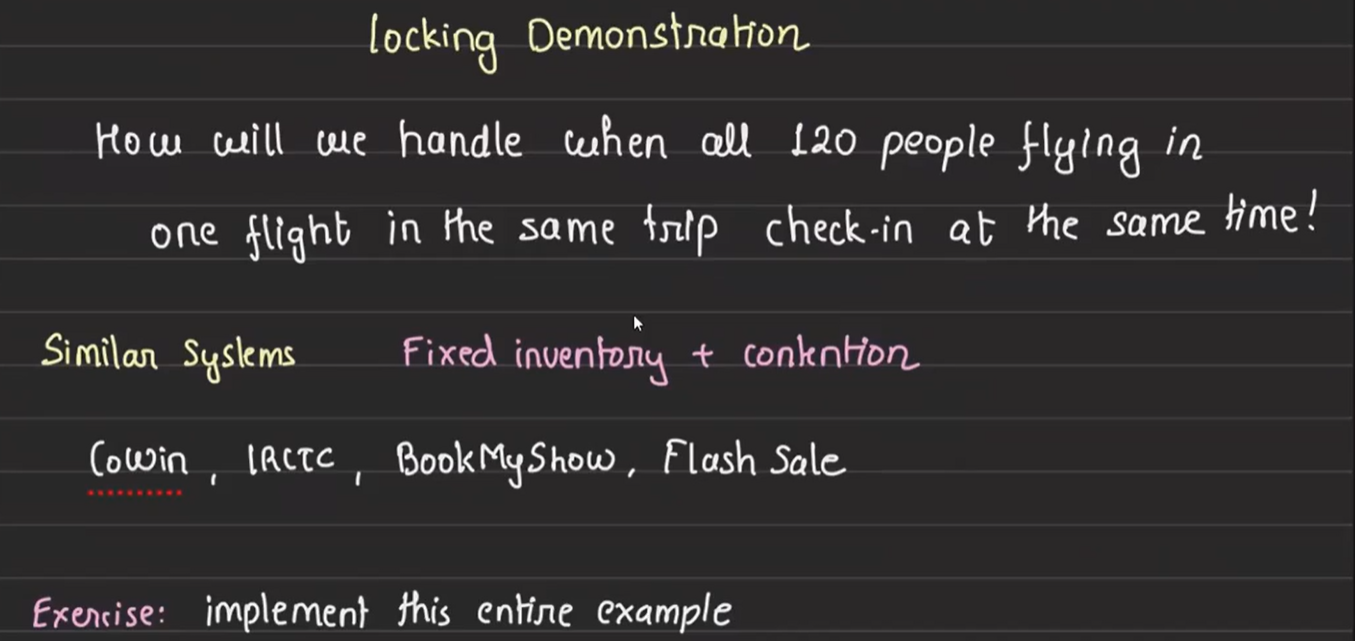 Locking Demonstration
How will we handle when all 120 people flying in
one flight in the same trip check-in at the same time!
Similar Systems Fixed inventory + contention
CoWin, IRCTC, BookMyShow, Flash Sale
Exercise: implement this entire example